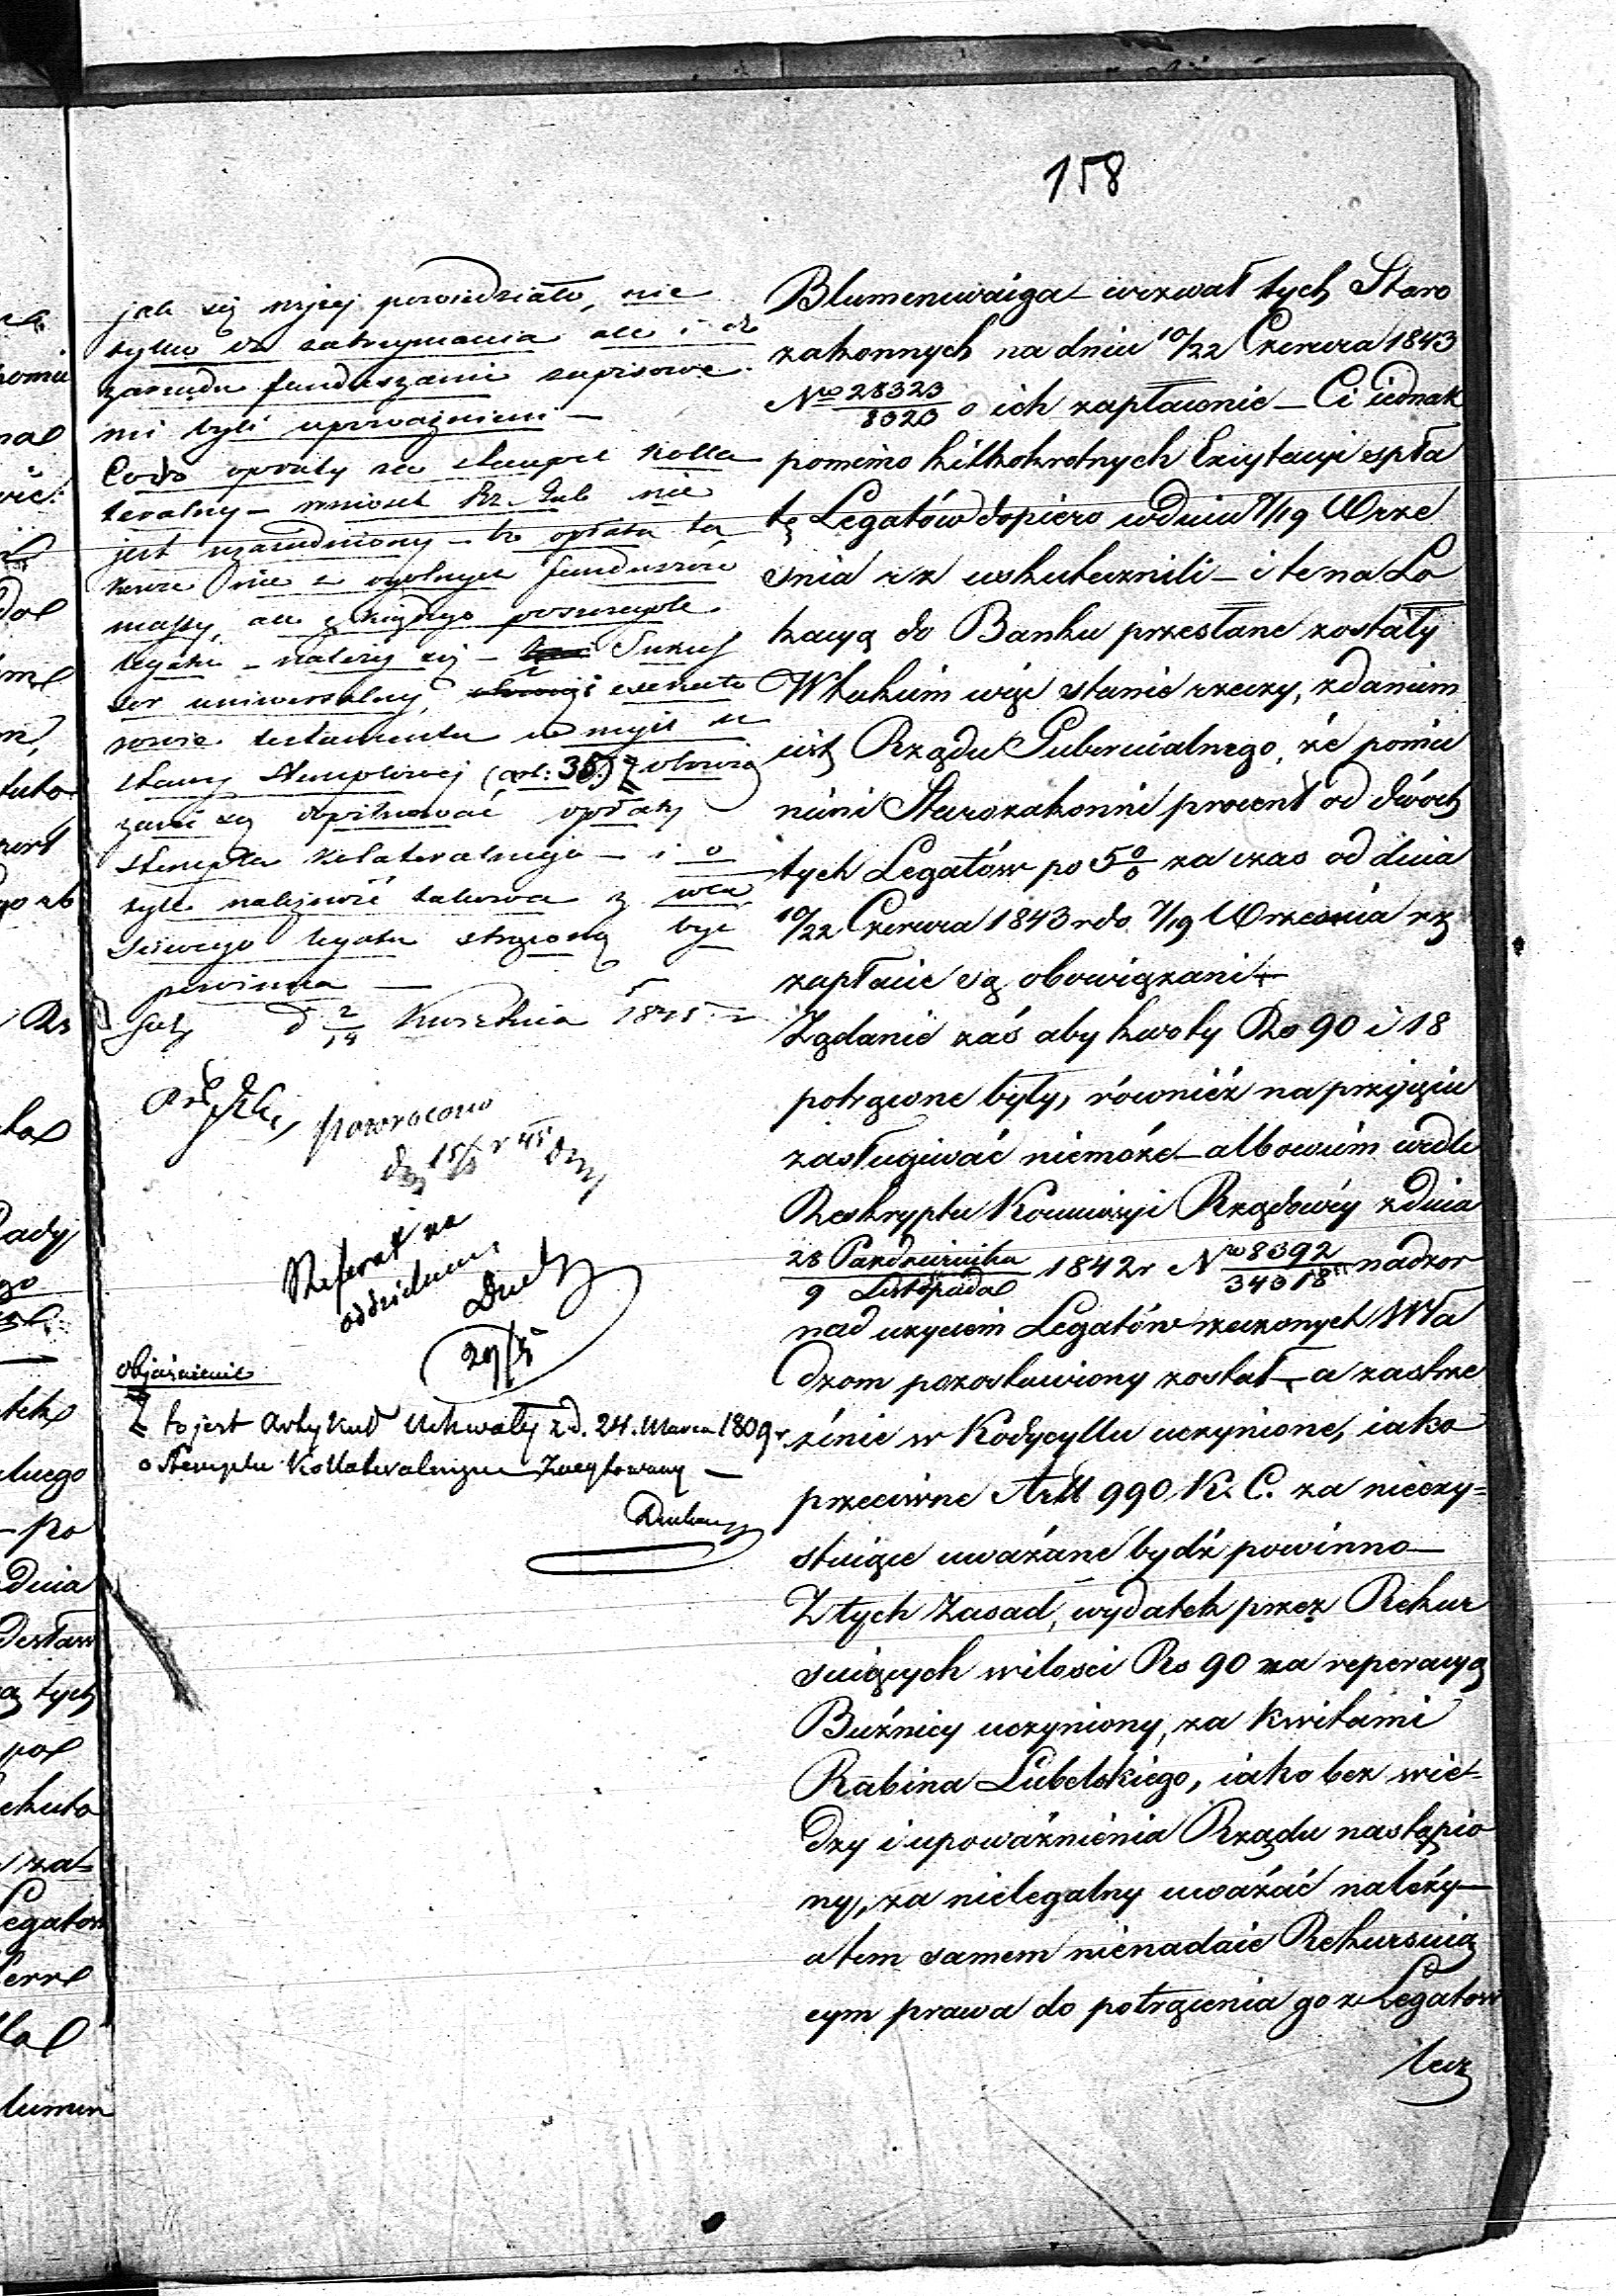 158
jak się wyżej powiedziało, nie
tylko do zatrzymania ale i do
zarządu funduszami zapisowe
mi byli upoważnieni —
Co do opłaty za stempel kolla
teralny — wniosek Rz. Gub nie
jest uzasadniony — bo opłata ta
kowa nie z ogólnych funduszów
massy, ale z każdego poszczególe
legatu — należy się — Sukces
sor uniwersalny, i exekuto
rowie testamentu w myśl u
stawy stemplowej (art: 35.) obowią
zani są dopilnować opłaty
stempla kolateralnego — i o
tyle należność takowa z wła
ściwego legatu strąconą być
powinna —
d 2/14 Kwietnia 1845 r
powrócono
Referat na
oddzielnem
29/5
objaśnienie
to jest Artykuł Uchwały z d. 24. Marca 1809 r.
o Stemplu Kollateralnym Zacytowany —
Blumenwaiga — wezwał tych Staro
zakonnych na dniu 10/22 Czerwca 1843
No 28323/8020 o ich zapłacenie — Ci iednak
pomimo kilkokrotnych Exzytacyi spła
tę Legatów dopiero w dniu 7/19 Wrze
śnia r z uskutecznili — i te na Lo
kacyą do Banku przesłane zostały
W takim więc stanie rzeczy, zdaniem
iest Rządu Gubernialnego, że pomie
nieni Starozakonni procent od dwóch
tych Legatów po 5% za czas od dnia
10/22 Czerwca 1843 r do 7/19 Września r z
zapłacić są obowiązani —
Żądanie zaś aby kwoty Rs 90 i 18
potrącone były, również na przyięcie
zasługiwać niemoże — albowiem wedle
Reskryptu Kommissyi Rządowéy z dnia
28 Października/9 Listopada 1842 r No 8392/34318 nadzor
nad użyciem Legatów rzeczonych Wła
dzom pozostawiony został — a zastrze
żenie w Kodycyllu uczynione, iako
przeciwne Art 990 K. C. za nieexy=
stuiące uważane bydź powinno —
Z tych Zasad, wydatek przez Rekur
suiących w ilości Rs 90 na reperacyą
Bużnicy uczyniony, za kwitami
Rabina Lubelskiego, iako bez wie=
dzy i upoważnienia Rządu nastąpio
ny, za nielegalny uważać należy —
a tem samem nienadaie Rekursuią
cym prawa do potrącenia go z Legatow
lecz